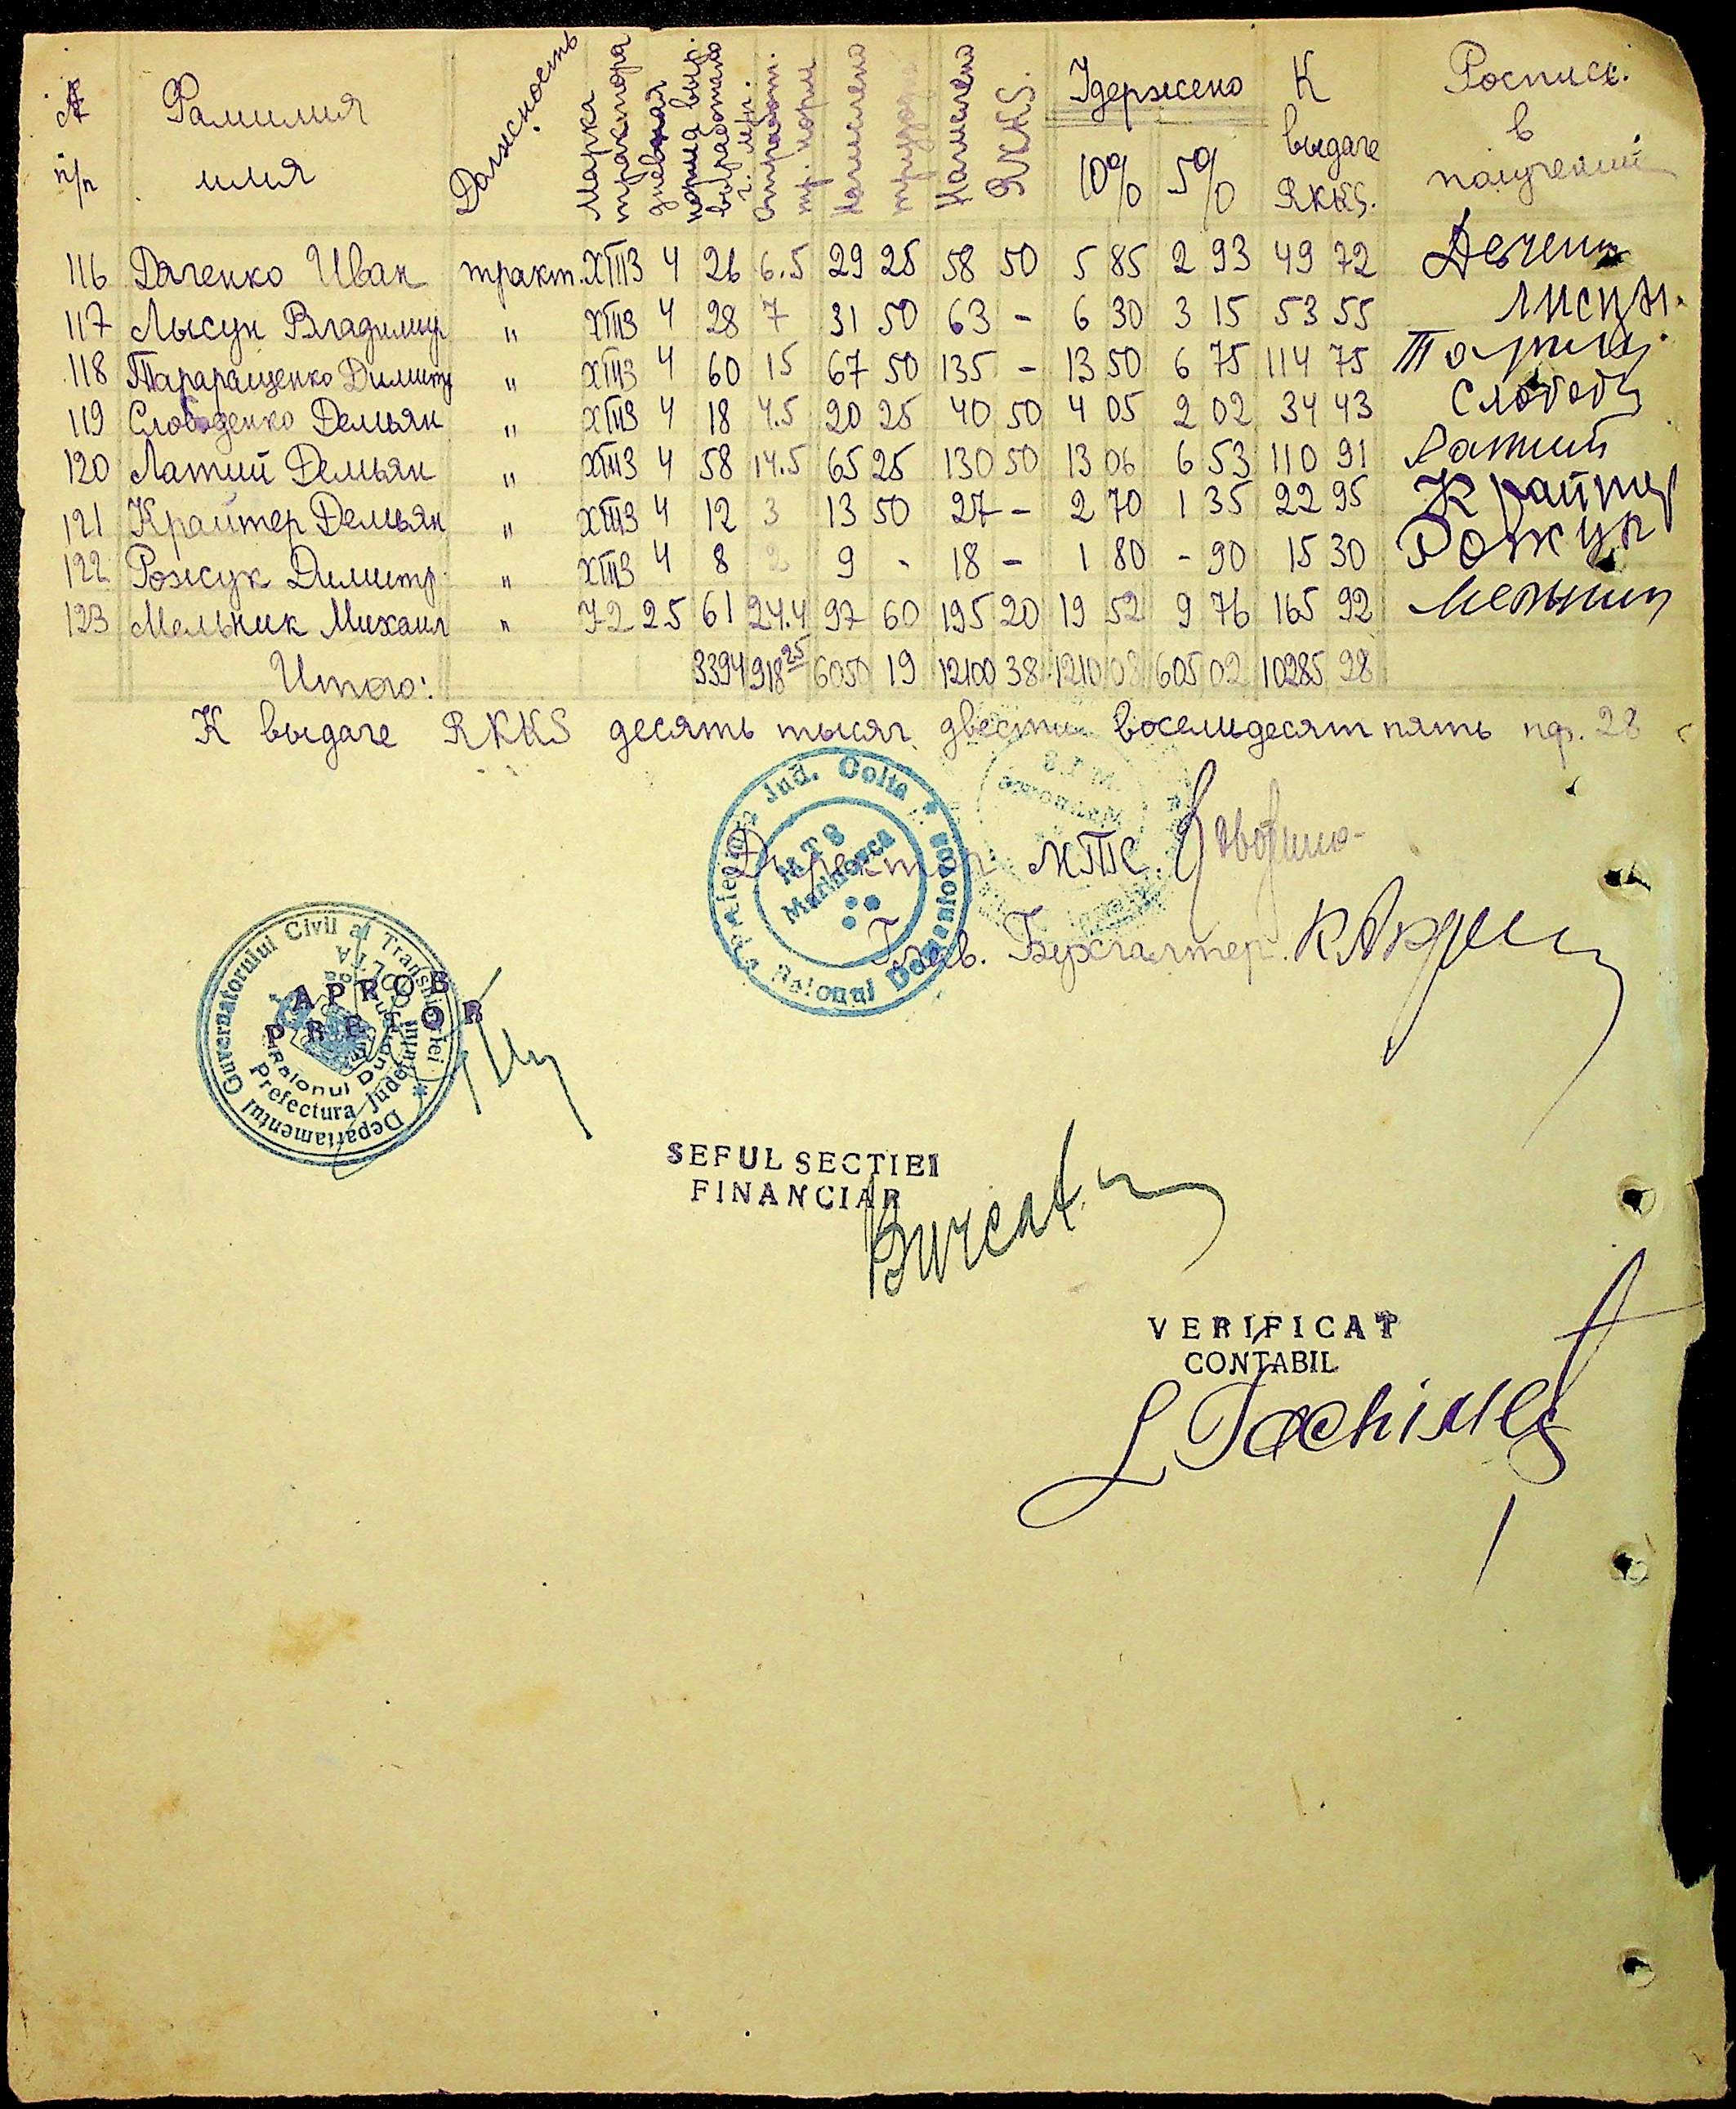 № п/п Фамилия имя Должность Марка трактора дневная норма выр. выработано г. мяг. отработ. тр. норм Начислено трудодн. Начислено RKKS. Удержено 10% 5% К выдаче RKKS. Роспись в получении
116 Дяченко Иван тракт. ХТПЗ 4 26 6.5 29 25 58 50 5 85 2 93 49 72
117 Лысун Владимир " ХТПЗ 4 28 7 31 50 63 - 6 30 3 15 53 55 Лисун
118 Тараращенко Димитр " ХТПЗ 4 60 15 67 50 135 - 13 50 6 75 114 75
119 Слободенко Демьян " ХТПЗ 4 18 4.5 20 25 40 50 4 05 2 02 34 43 Слобод
120 Латий Демьян " ХТПЗ 4 58 14.5 65 25 130 50 13 06 6 53 110 91 Латий
121 Крайтер Демьян " ХТПЗ 4 12 3 13 50 27 - 2 70 1 35 22 95 Крайтер
122 Рожук Димитр " ХТПЗ 4 8 2 9 - 18 - 1 80 - 90 15 30 Рожук
123 Мельник Михаил " 72 25 61 24.4 97 60 195 20 19 52 9 76 165 92 Мельник
Итого: 3394 918 25 6050 19 12100 38 1210 03 605 02 10285 28
К выдаче RKKS десять тысяч двести восемьдесят пять пф. 28
Jud. Golta * Raionul Domaniovca
MTS
Marinovca
Директор МТС.
Глав. Бухгалтер.
Guvernatorului Civil al Transnistriei * Departamentul
Prefectura Județului
GOLTA
Raionul
APROB
PRETOR
SEFUL SECTIEI
FINANCIAR
VERIFICAT
CONTABIL